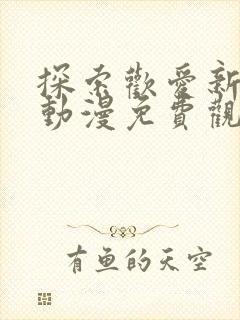 探索歡愛新
動漫免費觀
有魚的天空